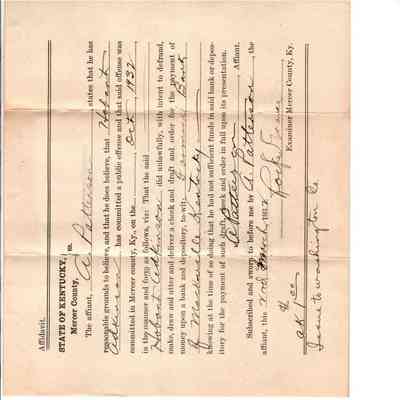 Affidavit.
STATE OF KENTUCKY,
Mercer County,
The affiant, A Patterson, states that he has
reasonable grounds to believe, and that he does believe, that Hobart
Adkinson has committed a public offense and that said offense was
committed in Mercer county, Ky., on the Oct, 1932
in the manner and form as follows, viz: That the said
Hobart Adkinson did unlawfully, with intent to defraud,
make, draw and utter and deliver a check and draft and order for the payment of
money upon a bank and depository, to-wit: Farmers Bank
of Kentucky
knowing at the time of so doing that he had not sufficient funds in said bank or depos-
itory for the payment of such draft, check and order in full upon its presentation.
A Patterson Affiant.
Subscribed and sworn to before me by A Patterson, the
affiant, this 2nd March, 193
Examiner Mercer County, Ky.
Issue to Washington Co